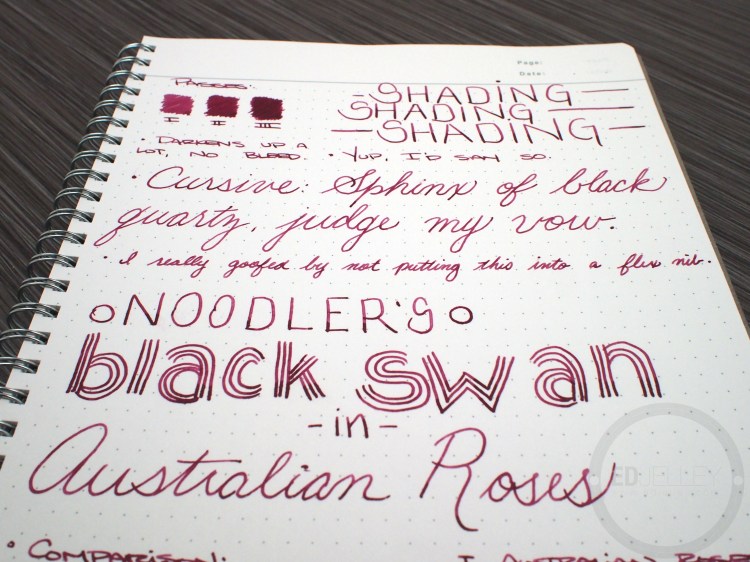 Page:
Date:
Passes:
I II III
-SHADING-
SHADING-
-SHADING-
• Darkens up a
lot, no bleed.
• Yup, I'd say so.
• Cursive: Sphinx of black
quartz, judge my vow.
• I really goofed by not putting this into a flex nib.
NOODLER'S
black swan
-in-
Australian Roses
• Comparison:
I. Australian Roses
ED JELLEY